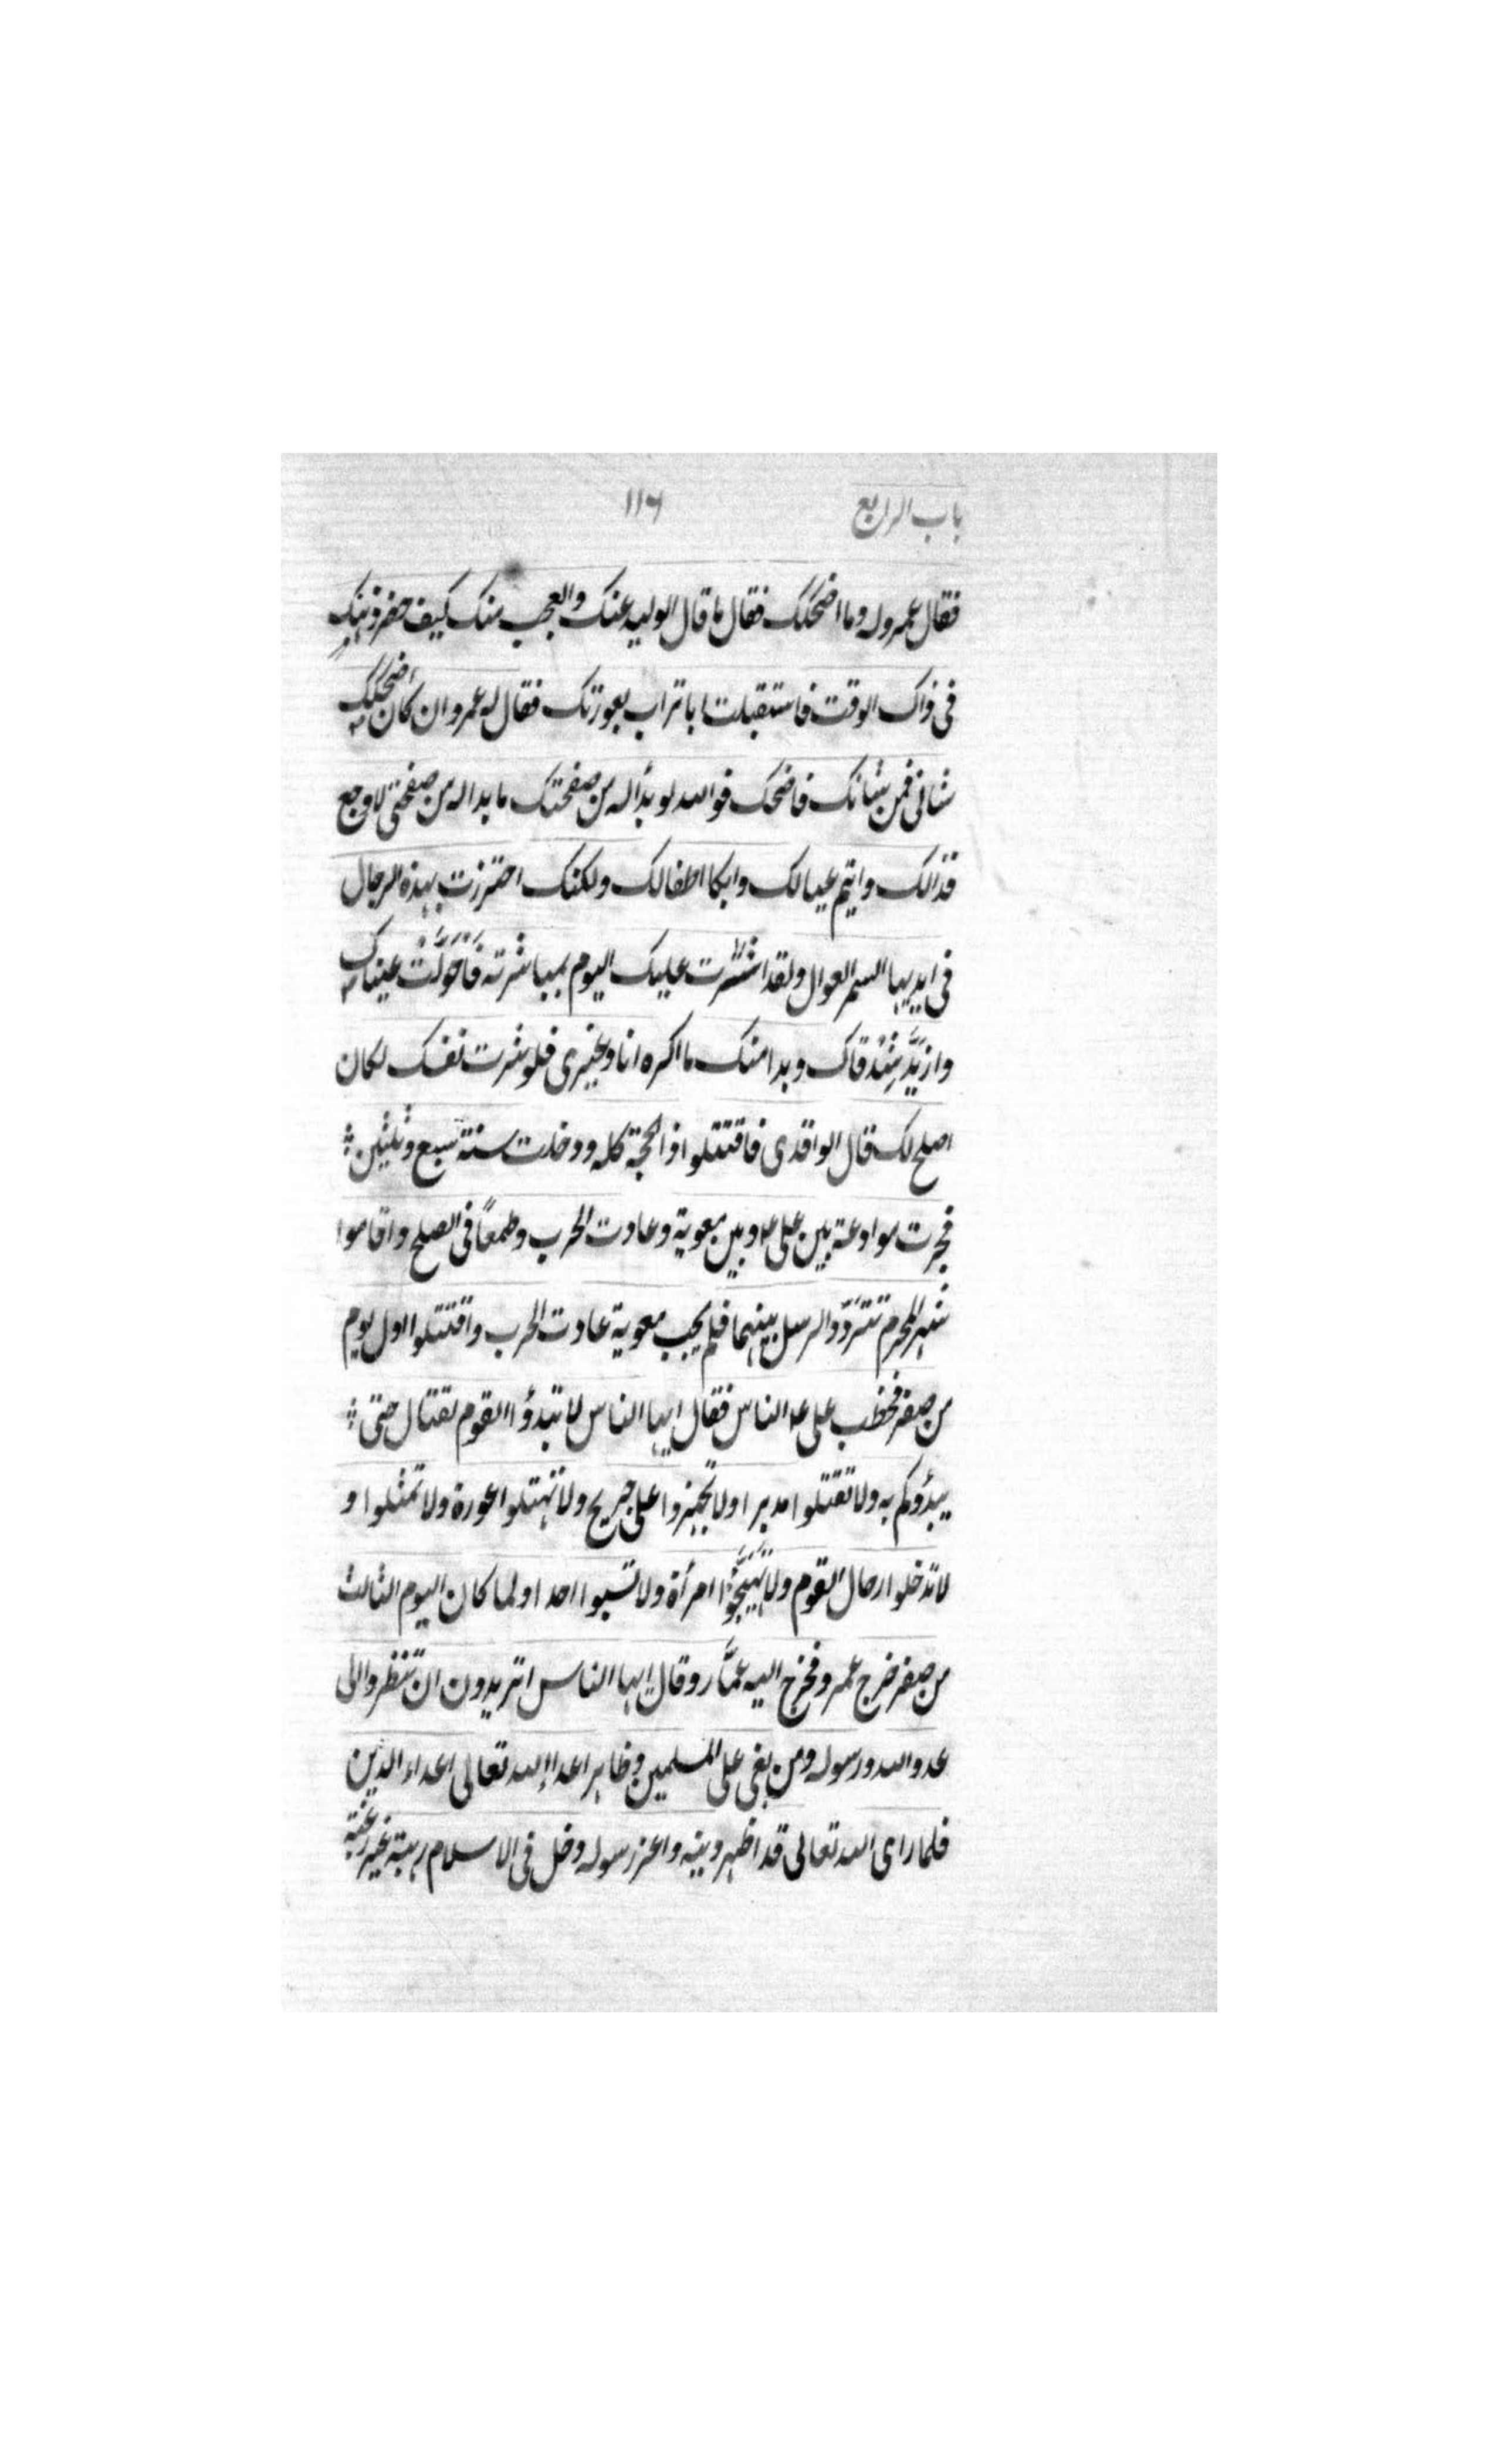 باب الرابع ١١٦
فقال عمرو له وما اضحكك فقال ما قال الوليد عنك والعجب منك كيف حضر ذهنك
فى ذاك الوقت فاستقبلت ابا تراب بعورتك فقال له عمرو ان كان اضحكك
شانى فمن شانك فاضحك فوالله لو بدٔا له من صفحتك ما بدا له من صفحتى لاوجع
قذالك وايتم عيالك وابكا اطفالك ولكنك احترزت بهذه الرجال
فى ايديها السمر العوال ولقد اشرت عليك اليوم بمباشرته فَاحْوَلَّتْ عيناك
وازبَدَّ شِدْقاك وبدا منك ما اكره انا وغيرى فلو سترت نفسك لكان
اصلح لك قال الواقدى فاقتتلوا ذا الحجة كله ودخلت سنة سبع وثلثين
فجرت موادعة بين على ع وبين معوية وعادت الحرب وطمعًا فى الصلح واقاموا
شهر المحرم تتردّد الرسل بينهما فلم يجب معوية عادت الحرب واقتتلوا اول يوم
من صفر فخطب على ع الناس فقال ايها الناس لا تبدؤا القوم بقتال حتى
يبدؤكم به ولا تقتلوا مدبرا ولا تجهزوا على جريح ولا تهتلوا عورة ولا تمثلوا و
لا تدخلوا رحال القوم ولا تُهَيِّجُوا امرأة ولا تسبوا احدا ولما كان اليوم الثالث
من صفر خرج عمرو فخرج اليه عمّار وقال ايها الناس اتريدون ان تنظروا الى
عدو الله ورسوله ومن بغى على المسلمين وظاهر اعداء الله تعالى اعداء الدين
فلما راى الله تعالى قد اظهر دينه واعز رسوله دخل فى الاسلام رهبة غير رغبة